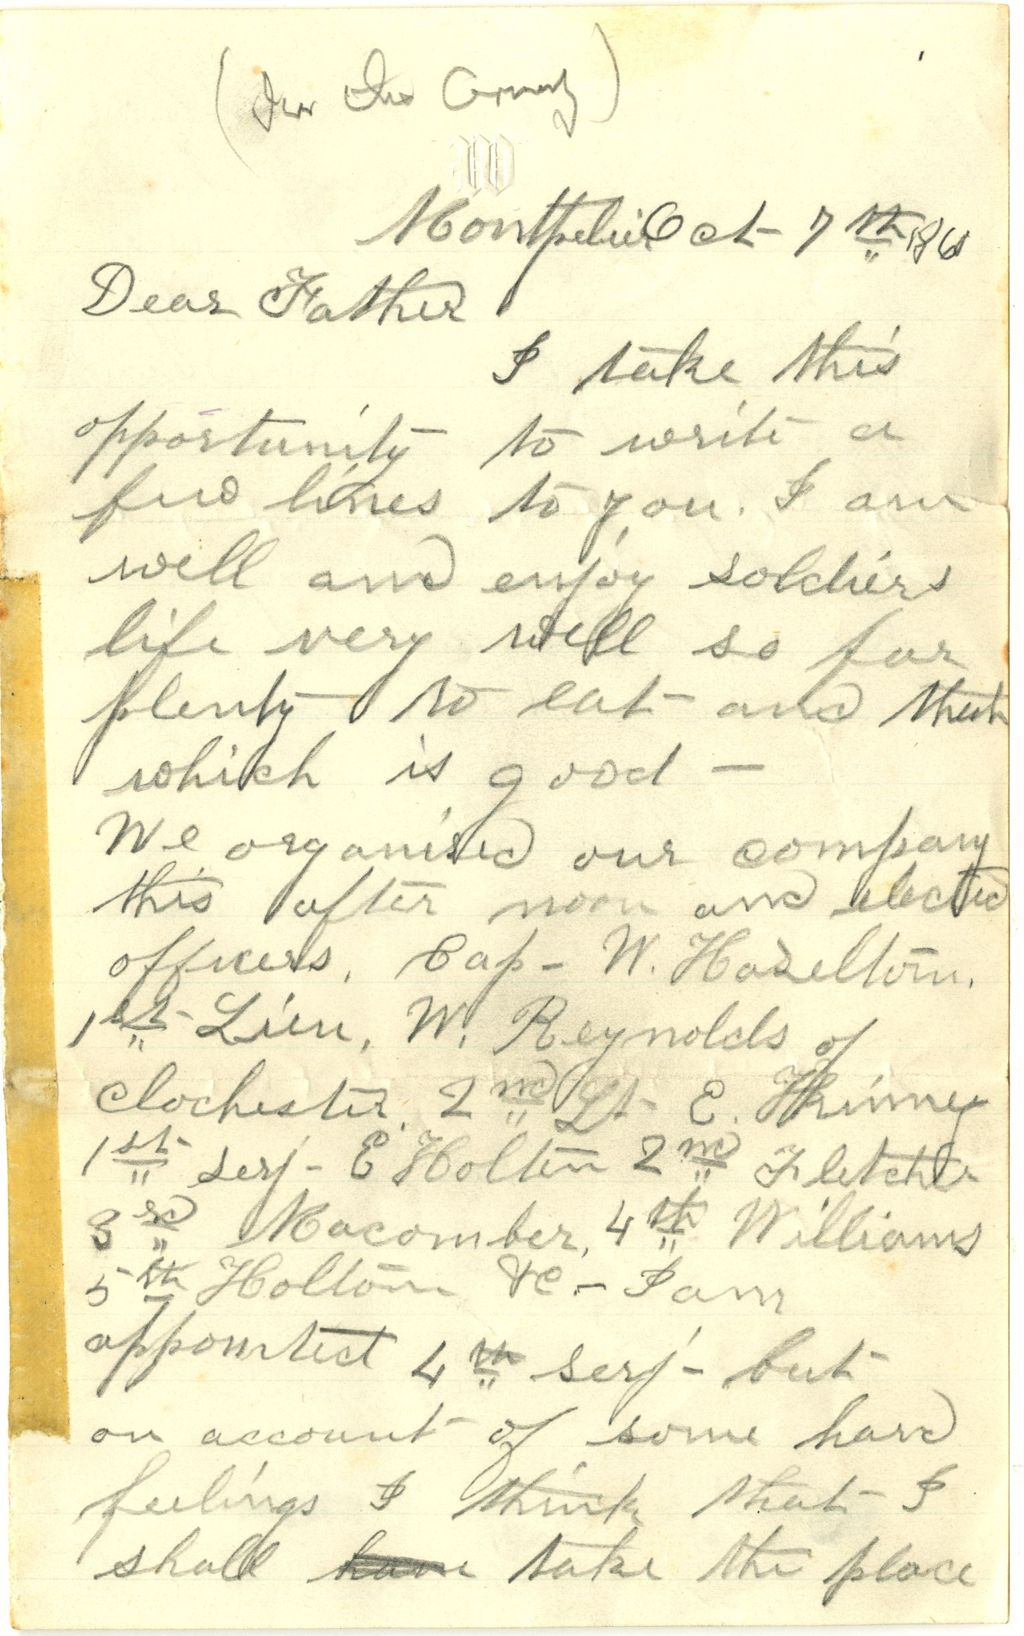 Montpelier Oct 7th 1861
Dear Father
I take this
opportunity to write a
few lines to you. I am
well and enjoy soldiers
life very well so far
plenty to eat and that
which is good —
We organised our company
this after noon and elected
officers, Cap- W. Hazelton.
1st Lieu, W. Reynolds of
Clochester, 2nd Lt- E.
1st serj- E Holton 2nd Fletcher
3rd Macomber, 4th Williams
5th Holton &C.- I am
appointed 4th serj- but
on account of some hard
feelings I think that I
shall have take the place